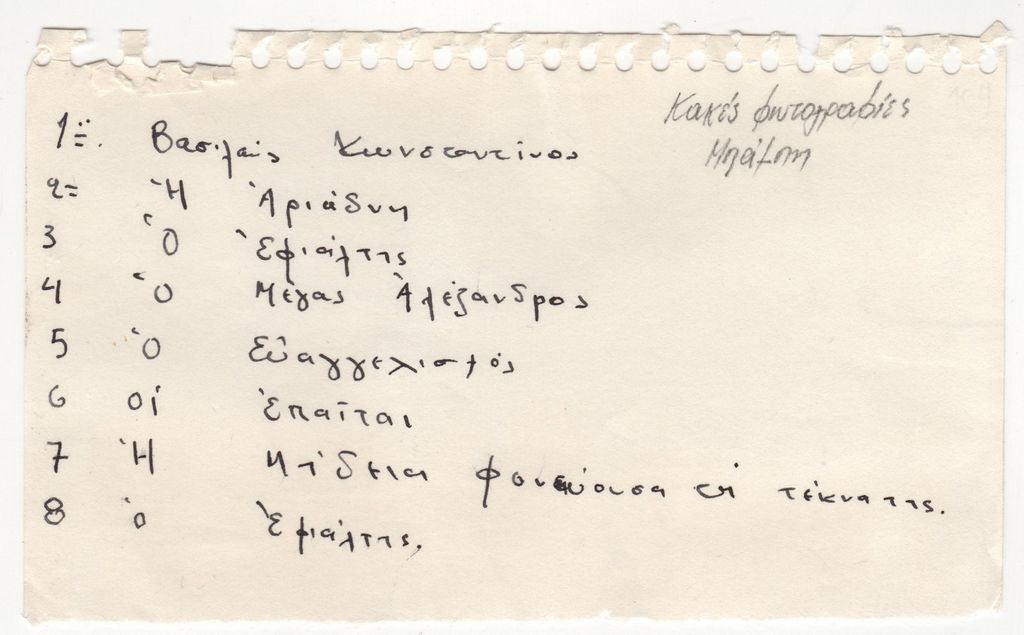 Κακές φωτογραφίες
Μπάμπη
1=. Βασιλεύς Κωνσταντίνος
2= Ἡ Ἀριάδνη
3 Ὁ Ἐφιάλτης
4 Ὁ Μέγας Ἀλέξανδρος
5 Ὁ Εὐαγγελισμός
6 οἱ Ἐπαῖται
7 Ἡ Μήδεια φονεύουσα τά τέκνα της.
8 ὁ Ἐφιάλτης.